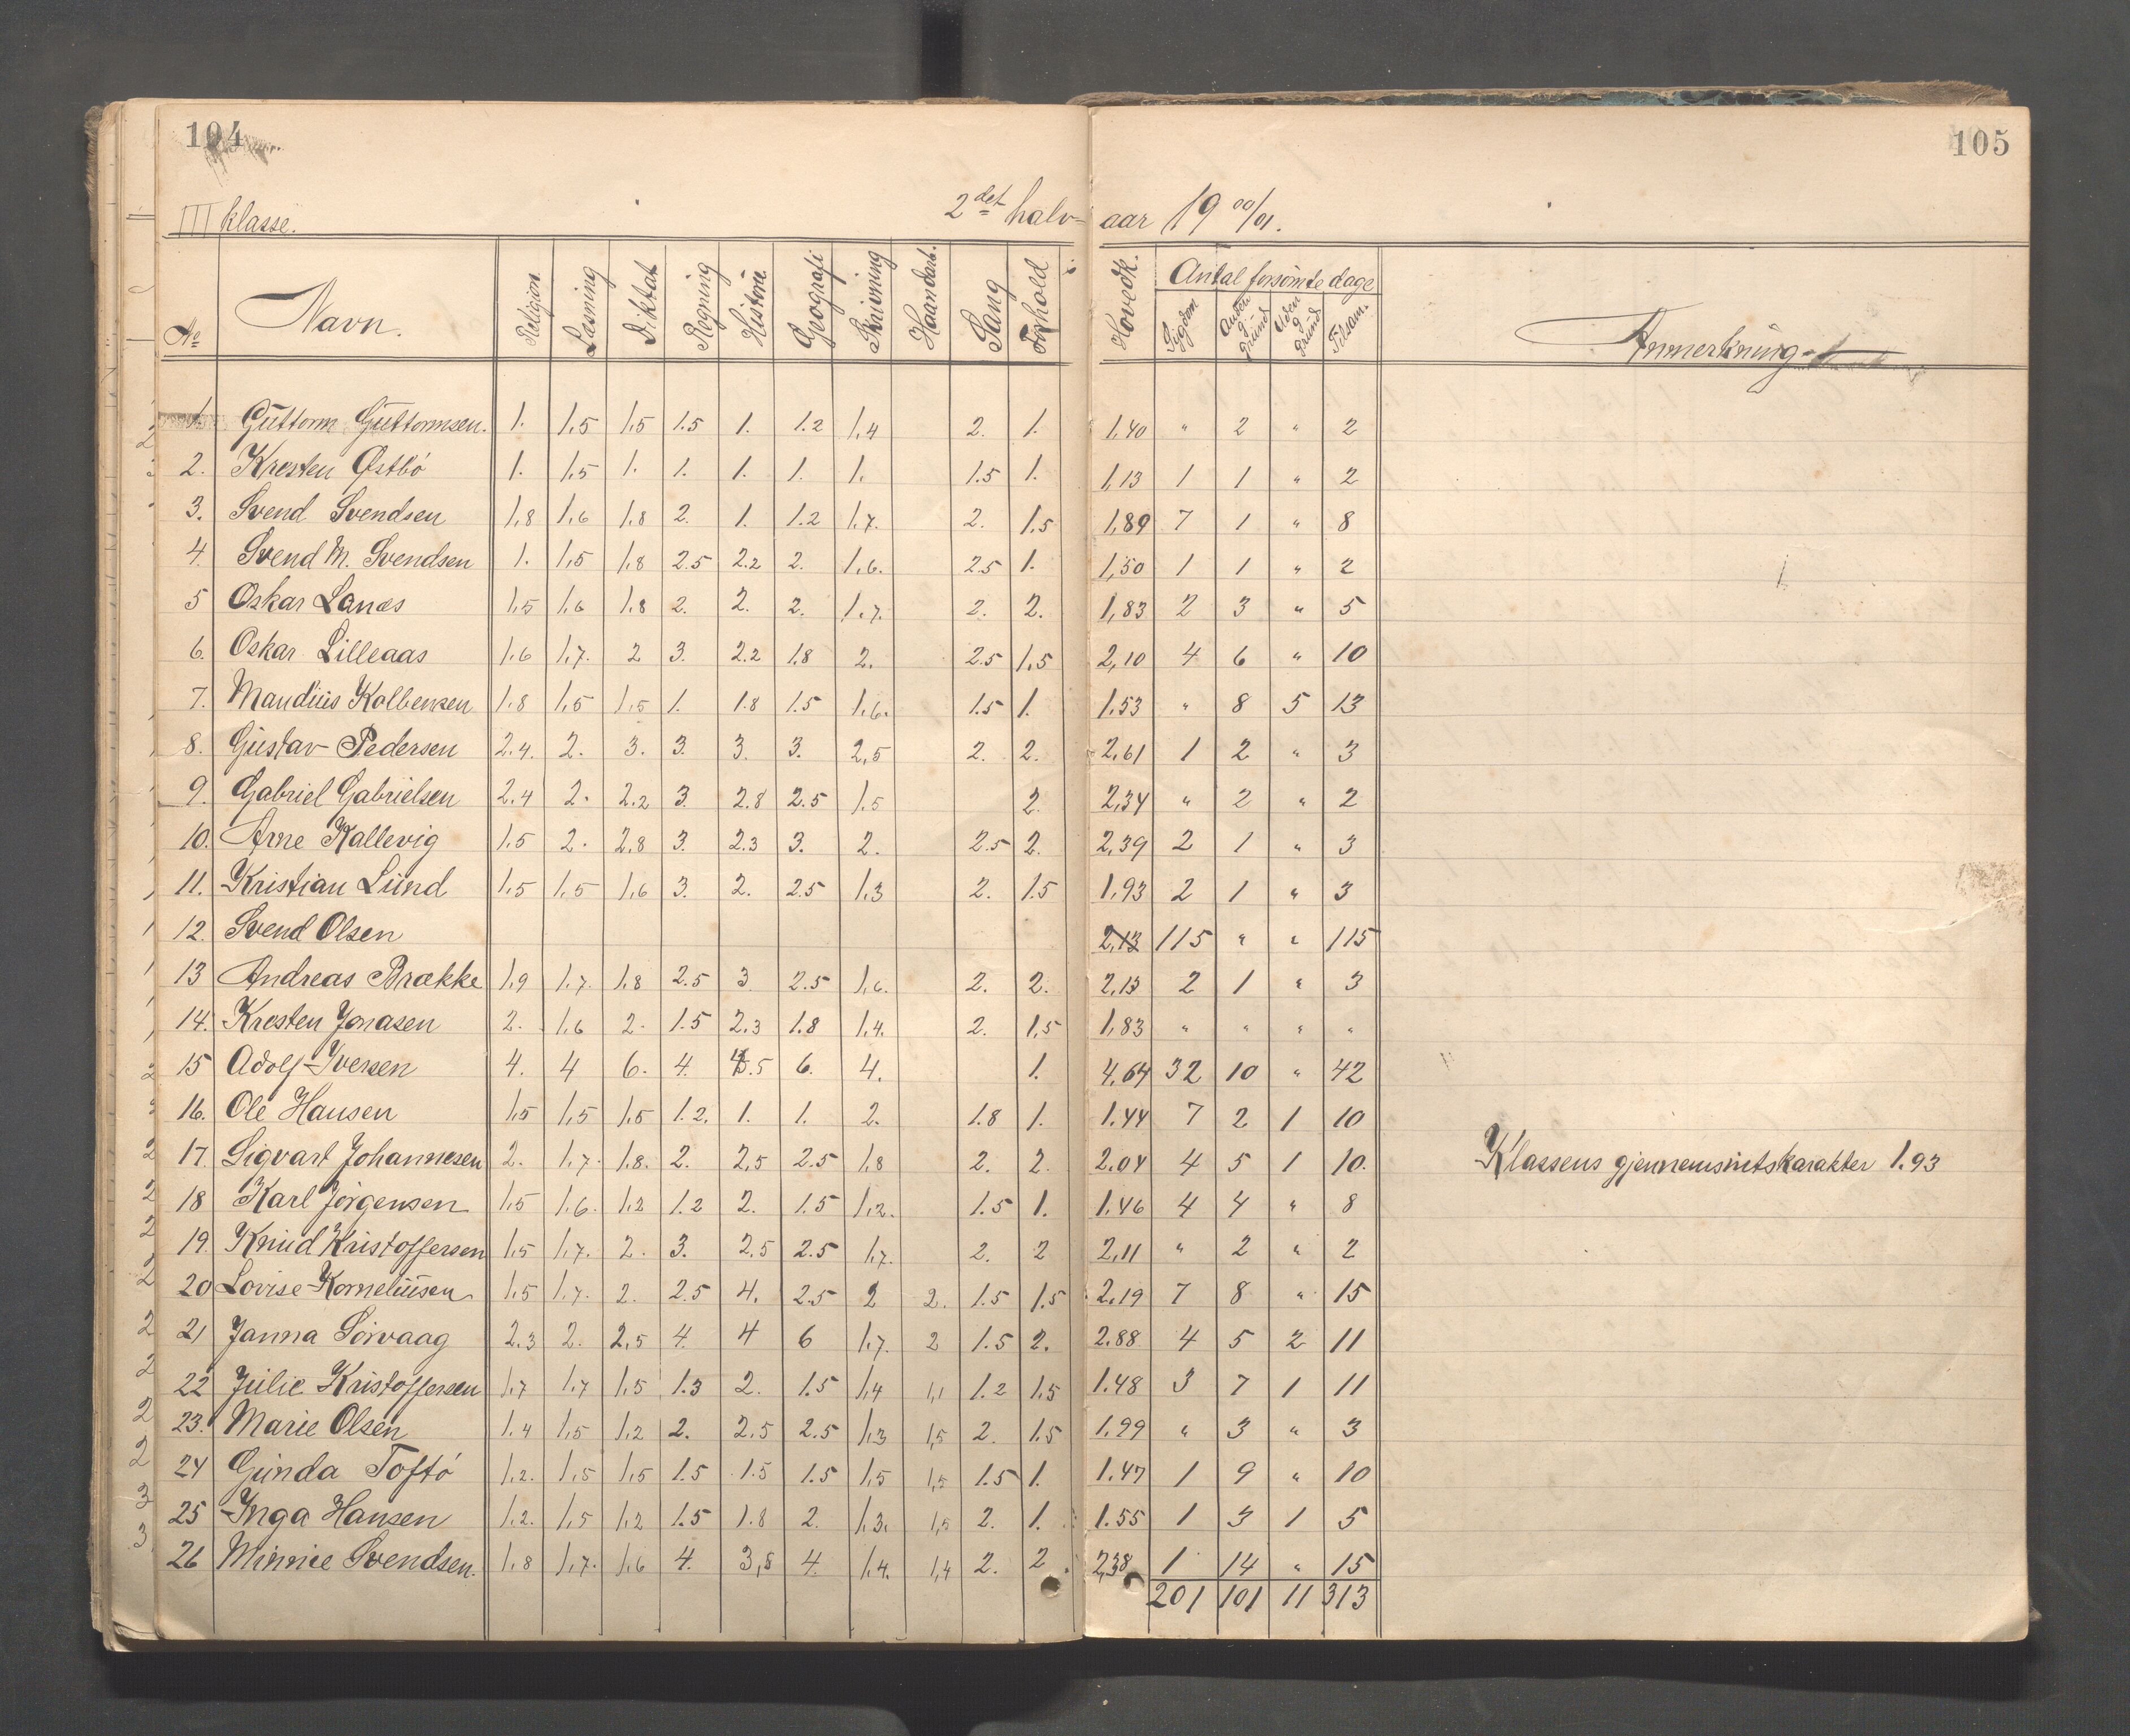 104
105
III klasse. 2det halv- aar 19 00/01.
No Navn. Religion Læsning Diktat Regning Historie Geografi Skrivning Haandarb. Sang Forhold Hovedk. Antal forsømte dage Anmerkning
Sygdom Anden g. grund Uden g. grund Tilsam.
1. Guttorm Guttormsen. 1. 1,5 1,5 1.5 1. 1.2 1,4 2. 1. 1,40 " 2 " 2
2. Kresten Østbø 1. 1,5 1. 1. 1. 1. 1. 1.5 1. 1,13 1 1 " 2
3. Svend Svendsen 1,8 1,6 1,8 2. 1. 1.2 1,7. 2. 1.5 1,89 7 1 " 8
4. Svend M. Svendsen 1. 1,5 1,8 2.5 2.2 2. 1,6. 2.5 1. 1,50 1 1 " 2
5 Oskar Lanæs 1,5 1,6 1,8 2. 2. 2. 1,7. 2. 2. 1,83 2 3 " 5
6. Oskar Lilleaas 1,6 1,7. 2 3. 2.2 1.8 2. 2.5 1,5 2,10 4 6 " 10
7. Maudius Kolbensen 1.8 1,5 1,5 1. 1.8 1.5 1,6. 1.5 1. 1.53 " 8 5 13
8. Gustav Pedersen 2.4. 2. 3. 3. 3. 3. 2,5 2. 2. 2,61 1 2 " 3
9. Gabriel Gabrielsen 2.4 2. 2.2 3. 2.8 2.5 1.5 2. 2,34 " 2 " 2
10. Arne Kallevig 1.5 2. 2,8 3. 2.3 3. 2. 2.5 2. 2,39 2 1 " 3
11. Kristian Lund 1,5 1,5 1,6 3. 2. 2.5 1,3 2. 1.5 1.93 2 1 " 3
12. Svend Olsen 2,13 115 " " 115
13 Andreas Brække 1,9 1,7. 1,8 2.5 3 2.5 1,6. 2. 2. 2,13 2 1 " 3
14. Kresten Jonasen 2. 1,6 2. 1.5 2.3 1.8 1,4. 2. 1,5 1,83 " " " "
15 Adolf Iversen 4. 4 6. 4. 4.5 6. 4. 1. 4.64 32 10 " 42
16. Ole Hansen 1,5 1,5 1,5 1.2. 1. 1. 2. 1.8 1. 1.44 7 2 1 10
17. Sigvart Johannesen 2. 1,7. 1,8. 2. 2,5 2.5 1,8 2. 2. 2.04 4 5 1 10. Klassens gjennemsnitskarakter 1.93
18 Karl Jørgensen 1,5 1,6. 1,2 1.2 2. 1.5 1,2. 1.5 1. 1.46 4 4 " 8
19. Knud Kristoffersen 1,5 1,7. 2. 3. 2.5 2.5 1,7. 2. 2 2,11 " 2 " 2
20 Lovise Korneliusen 1,5 1,7. 2. 2.5 4. 2.5 2 2. 1.5 1.5 2.19 7 8 " 15
21 Janna Sørvaag 2.3 2. 2,5 4. 4 6 1,7. 2 1.5 2. 2.88 4 5 2 11
22 Julie Kristoffersen 1,7 1,7 1,5 1.3 2. 1.5 1,4 1,1 1.2 1,5 1.48 3 7 1 11
23. Marie Olsen 1.4 1,5 1,2 2. 2.5 2.5 1,3 1,5 2. 1.5 1.99 " 3 " 3
24 Gunda Toftø 1,2. 1,5 1,5 1.5 1.5 1.5 1,5 1,5 1.5 1. 1.47 1 9 " 10
25 Inga Hansen 1,2. 1,5 1,2 1.5 1.8 2. 1,3. 1,5 2. 1. 1.55 1 3 1 5
26 Minnie Svendsen. 1,8 1,7. 1,6 4. 3,5 4. 1,4. 1,4 2. 2 2,38 1 14 " 15
201 101 11 313